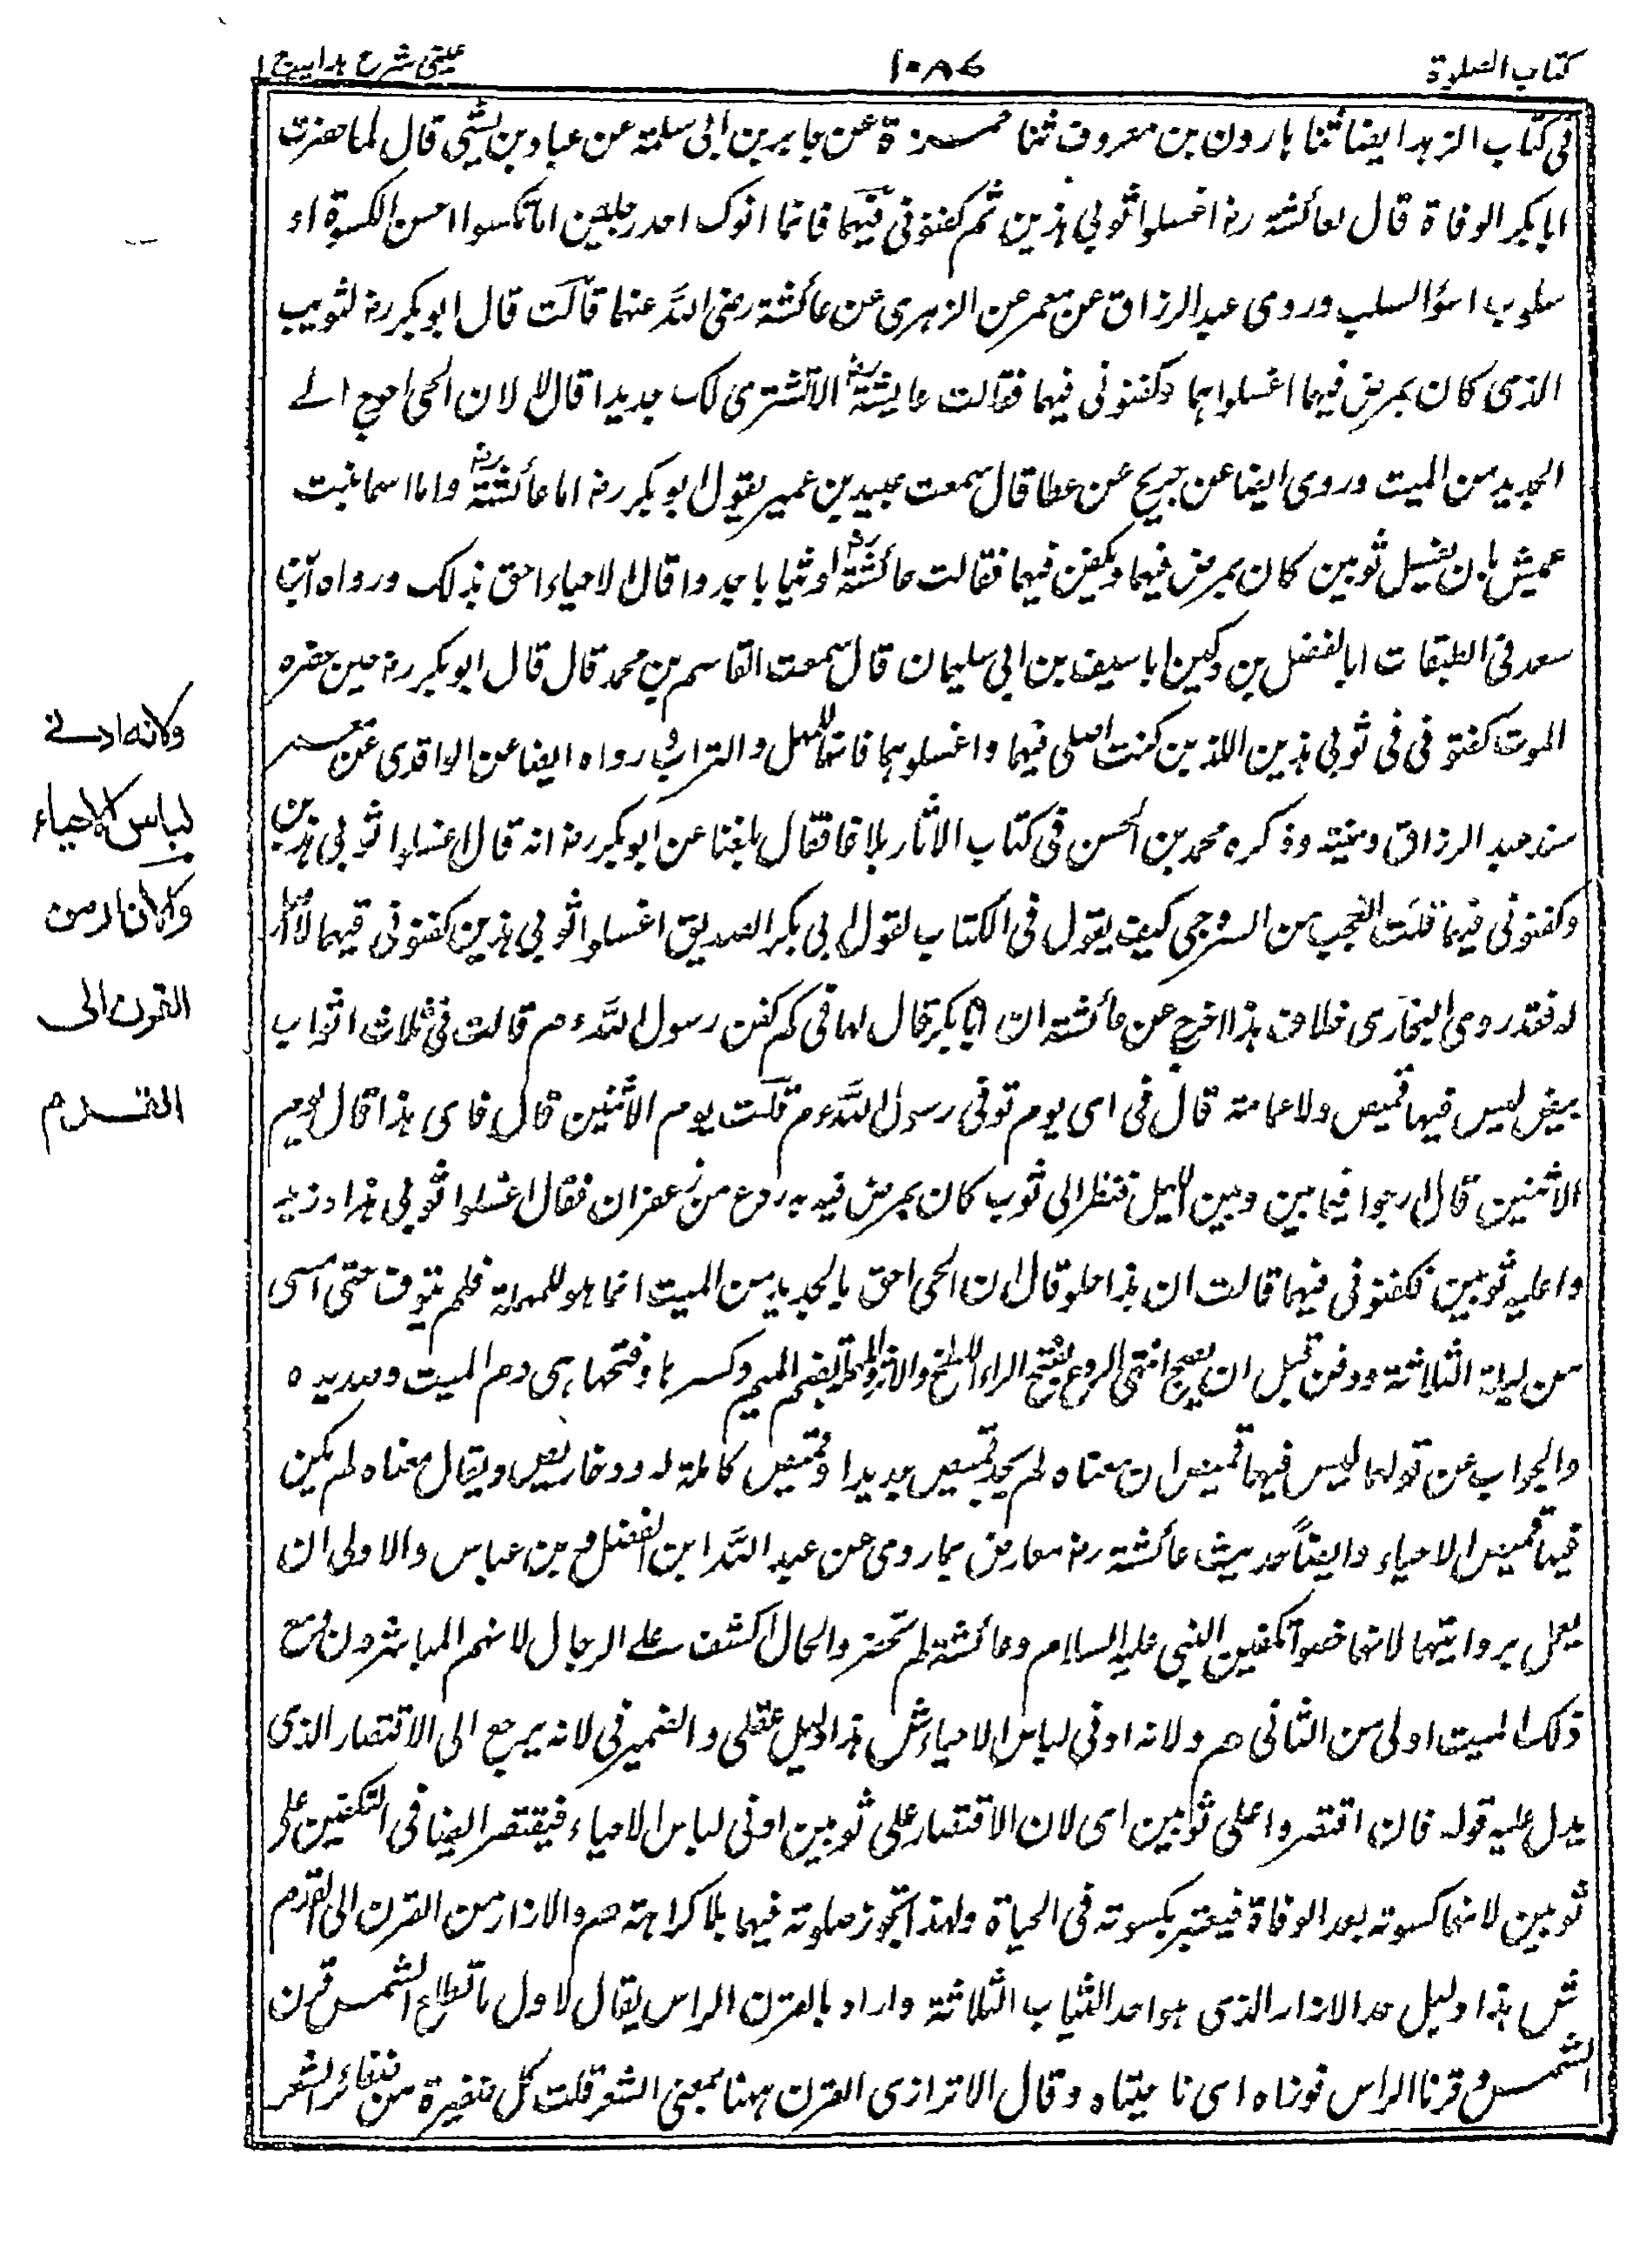 كتاب الصلوة
١٠٨٦
عينى شرح هدايه ج ١
فى كتاب الزهد ايضا ثنا هارون بن معروف ثنا ضمرة عن جابر بن ابى سلمة عن عباد بن قال لما حضرت
ابا بكر الوفاة قال لعائشة رضہ اغسلوا ثوبى هذين ثم كفنونى فيهما فانما ابوك احد رجلين اما مكسوا احسن الكسوة او
مسلوب اسوأ السلب وروى عبد الرزاق عن معمر عن الزهرى عن عائشة رضى الله عنها قالت قال ابو بكر رضہ لثوبيه
الذى كان يمرض فيهما اغسلوا هما وكفنونى فيهما فقالت عايشة رضہ الا نشترى لك جديدا قال لا لان الحى احوج الے
الجديد من الميت وروى ايضا عن جريج عن عطا قال سمعت عبيد بن عمير يقول ابو بكر رضہ اما عائشة رضہ واما اسما بنت
عميش بان يغسل ثوبين كان يمرض فيهما ويكفن فيهما فقالت عائشة رضہ او ثيابا جددا قال الاحياء احق بذلك ورواه ابن
سعد فى الطبقات ابا الفضل بن دكين ابا سيف بن ابى سليمان قال سمعت القاسم بن محمد قال قال ابو بكر رضہ حين حضره
الموت كفنونى فى ثوبى هذين اللذين كنت اصلى فيهما واغسلوهما فانهما للمهل والتراب ورواه ايضا عن الواقدى عن معمر
سند عبد الرزاق ومتنه وذكره محمد بن الحسن فى كتاب الاثار بلاغا فقال بلغنا عن ابو بكر رضہ انه قال اغسلوا ثوبى هذين
وكفنونى فيهما قلت العجب من السروجى كيف يقول فى الكتاب لقول ابى بكر الصديق اغسلوا ثوبى هذين كفنونى فيهما لا اصل
له فقد روى البخارى خلاف هذا اخرج عن عائشة ان ابا بكر قال لها فى كم كفن رسول الله ء م قالت فى ثلاث اثواب
بيض ليس فيها قميص ولا عمامة قال فى اى يوم توفى رسول الله ء م قلت يوم الاثنين قال فاى هذا قال يوم
الاثنين قال ارجوا فيما بين وبين الليل فنظر الى ثوب كان يمرض فيه به ردع من زعفران فقال اغسلوا ثوبى هذا وزيد
وا عليه ثوبين فكفنونى فيهما قالت ان هذا خلو قال ان الحى احق بالجديد من الميت انما هو للمهلة فلم يتوف حتى امسى
من ليلة الثلاثة ودفن قبل ان يصبح انتهى الردع بفتح الراء اللطخ والاثر والمهلة بضم الميم وكسرها وفتحها هى دم الميت وصديده
والجواب عن قولها ليس فيها قميص ان معناه لم يجد قميص جديدا وقميص كاملة له ودخاريص ويقال معناه لم يكن
فيها قميص الاحياء وايضاً حديث عائشة رضہ معارض بما روى عن عبد الله ابن الفضل و بن عباس والاولى ان
يعمل بروايتهما لانهما حضروا تكفين النبى عليه السلام وعائشة لم تحضر والحال اكشف على الرجال لانهم المباشرون مع
ذلك الميت اولى من الثانى صر ولانه ادنى لباس الاحياء ش هذا دليل عقلى والضمير فى لانه يرجع الى الاقتصار الذى
يدل عليه قوله فان اقتصروا على ثوبين اى لان الاقتصار على ثوبين ادنى لباس الاحياء فيقتصر ايضا فى التكفين على
ثوبين لانهما كسوته بعد الوفاة فيعتبر بكسوته فى الحياة ولهذا تجوز صلوته فيهما بلا كراهة صر والازار من القرن الى القدم
ش هذا دليل حد الازار الذى هو احد الثياب الثلاثة واراد بالقرن الراس يقال لاول ما تطلع الشمس قرن
الشمس وقرنا الراس فوداه اى ناحيتاه وقال الاترازى القرن ههنا بمعنى الشعر قلت كل ضفيرة من ضفائر الشعر
ولانه ادنے
لباس الاحياء
والازار من
القرن الى
القدم